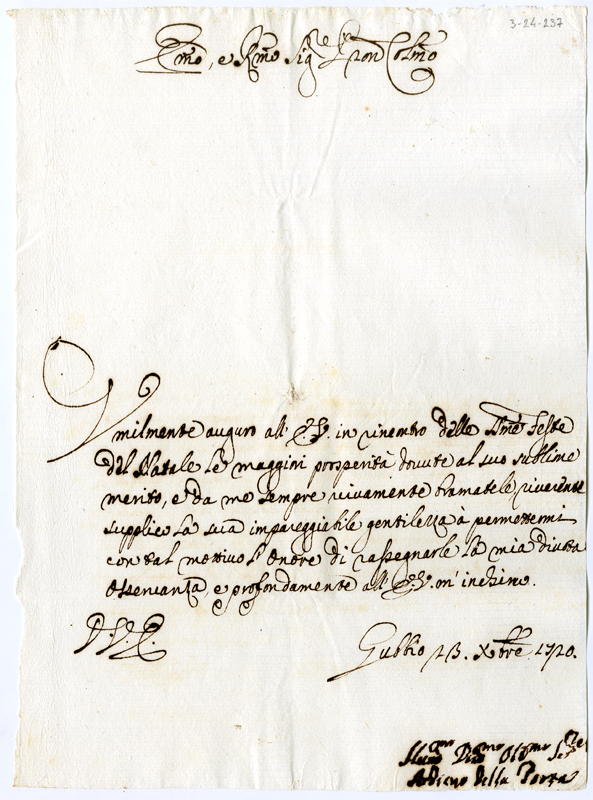 3-24-237
Emo, e Rmo Sigre Pron Colmo
Vmilmente auguro all' E.V. in rincontro delle Sme Feste
del Natale le maggiori prosperità dovute al suo sublime
merito, e da me sempre vivamente bramatele, riverente
supplico la sua impareggiabile gentilezza à permettermi
con tal mottivo l'onore di rassegnarle la mia divota
Osservanza, e profondamente all' E.V. m' inchino.
D. V. E.
Gubbio 13. Xbre 1720.
Humo Divmo Oblmo Sere
della Porta